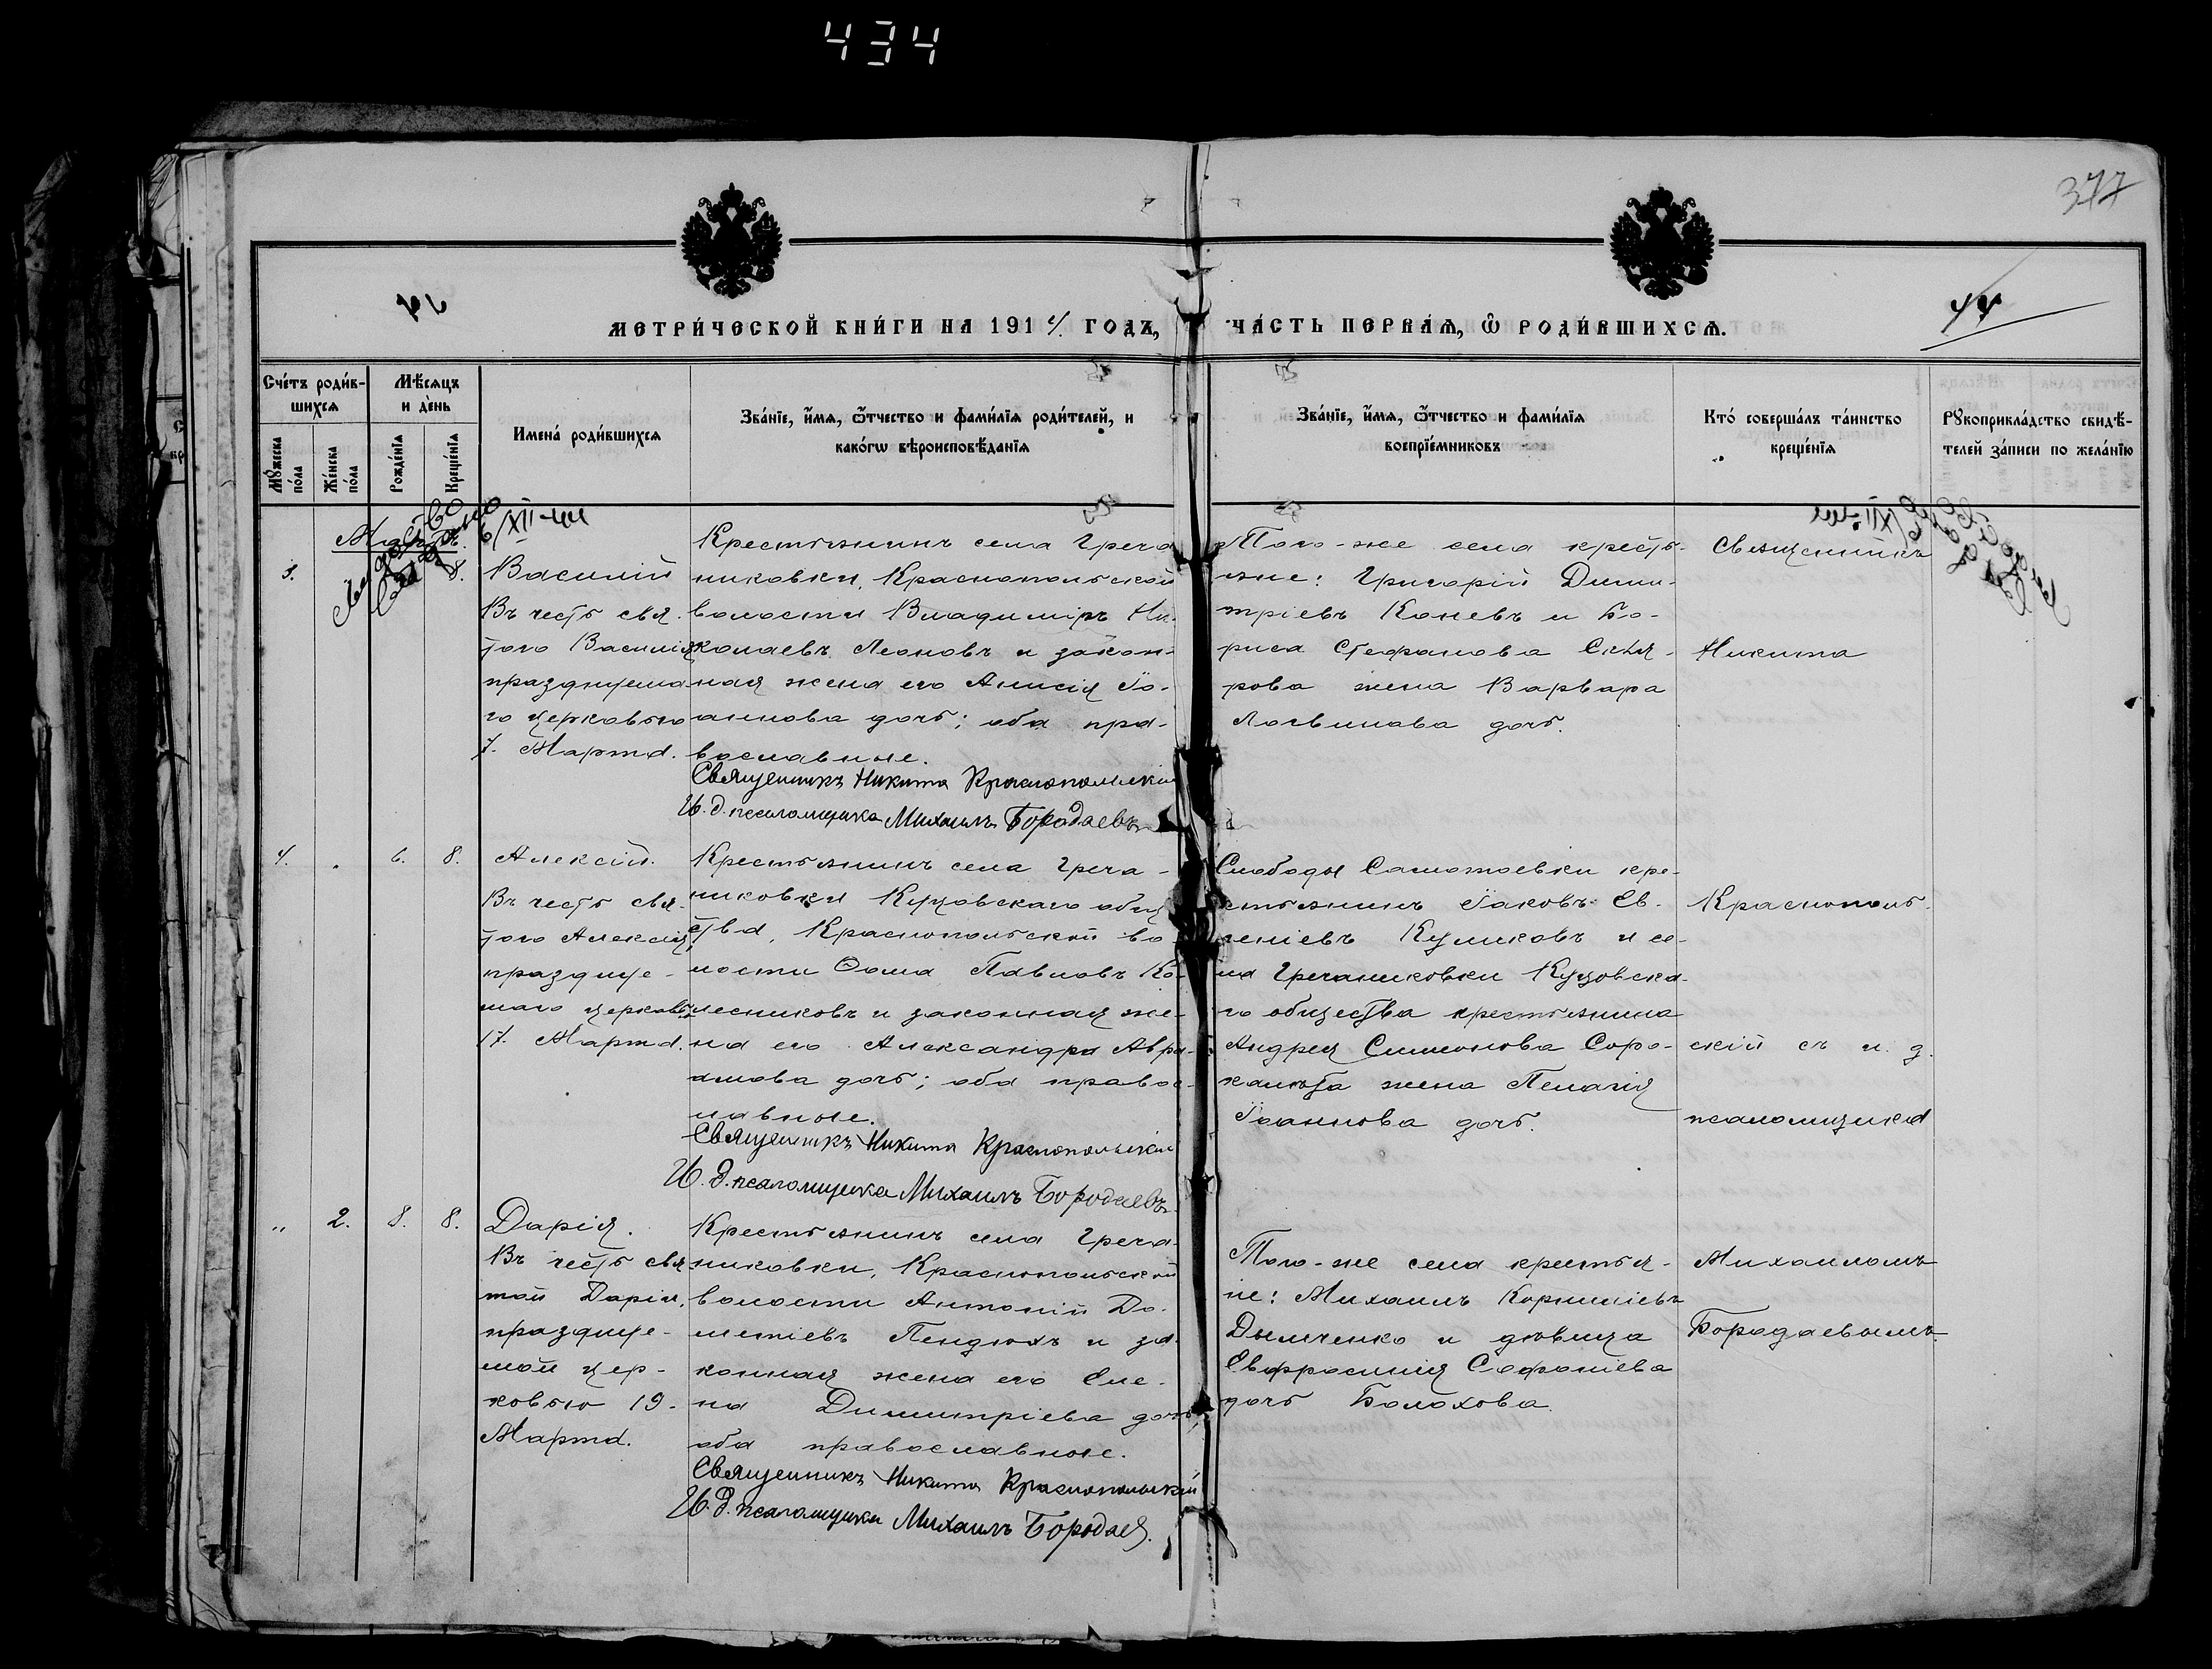 434
377
МЕТРИ́ЧЕСКОЙ КНИ́ГИ НА 1914 ГОДЪ, ЧА́СТЬ ПЕРВАЯ, Ѡ РОДИ́ВШИХСЯ.
Сче́тъ роди́в-
шихся
Мѣ́сяцъ
и де́нь
Мꙋ́жеска
по́ла
Же́нска
по́ла
Рожде́нїя
Креще́нїя
Имена́ роди́вшихся
Зва́нїе, и́мя, ѻ҆́тчество и фами́лїя роди́телей, и
како́гѡ вѣроисповѣ́данїя
Зва́нїе, и́мя, ѻ҆́тчество и фами́лїя
воспрїе́мниковъ
Кто̀ соверша́лъ та́инство
креще́нїя
Рꙋкоприкла́дство свидѣ́-
телей за́писи по жела́нїю
Мартъ.
6/XII-44
3.
8.
Василій
Въ честь свя-
того Василія
празднуема-
го церковью
7. Марта.
Крестьянинъ села Греча
никовки, Краснопольской
волости Владиміръ Ни-
колаевъ Леоновъ и закон-
ная жена его Анисія Іо-
аннова дочь; оба пра-
вославные.
Священникъ Никита Краснопольскій
И. д. псаломщика Михаилъ Бородаевъ
Того-же села кресть-
яне: Григорій Дими-
тріевъ Коневъ и Бо-
риса Стефанова Скля-
рова жена Варвара
Логвинова дочь.
Священникъ
Никита
4.
6.
8.
Алексій.
Въ честь свя-
того Алексія
праздnуе-
маго церковью
17. Марта.
Крестьянинъ села Греча-
никовки Куцовскаго общ
ства, Краснопольской во-
лости Ѳома Павловъ Ко-
лесниковъ и законная же-
на его Александра Авра-
амова дочь; оба правос-
лавные.
Священникъ Никита Краснопольскій
И. д. псаломщика Михаилъ Бородаевъ
Слободы Самотоевки кре-
стьянинъ Іаковъ Ев-
геніевъ Куликовъ и се-
ла Гречаниковки Куцовска-
го общества крестьянина
Андрея Симеонова Соро-
жена Пелагія
Іоаннова дочь.
Краснополь-
скій съ и. д.
псаломщика
"
2.
8.
8.
Дарія.
Въ честь свя
той Даріи,
празднуе-
мой цер-
ковью 19-
Марта.
Крестьянинъ села Греча-
никовки, Краснопольской
волости Антоній До-
Пендюхъ и за-
конная жена его Еле-
на Димитріева дочь,
оба православные.
Священникъ Никита Краснопольскій
И. д. псаломщика Михаилъ Бородаев.
Того-же села крестья-
не: Михаилъ Корниліевъ
Дымченко и дѣвица
Евфросинія Софоніева
дочь Болохова.
Михаиломъ
Бородаевымъ.